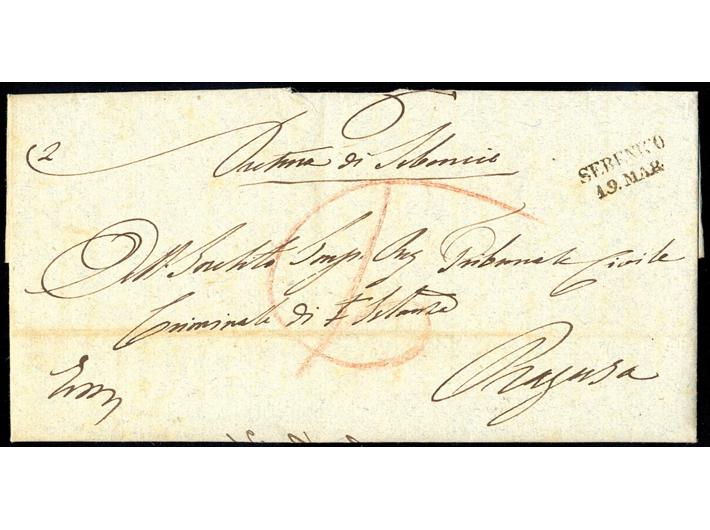 2
Pretura di Sebenico
SEBENICO
19. MAR
All' Inclito Imp. Reg. Tribunale Civile
Criminale di I Istanza
Ragusa